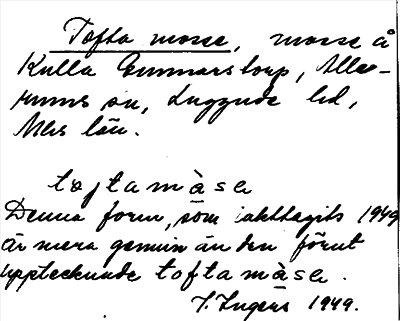 Tofta mosse, mosse å
Kulla Gunnarstorp, Alle-
rums sn, Luggude hd,
Mlrs län.
toftamàsa
Denna form, som iakttagits 1949
är mera genuin än den förut
uppteckande toftamàsa.
I. Ingers 1949.